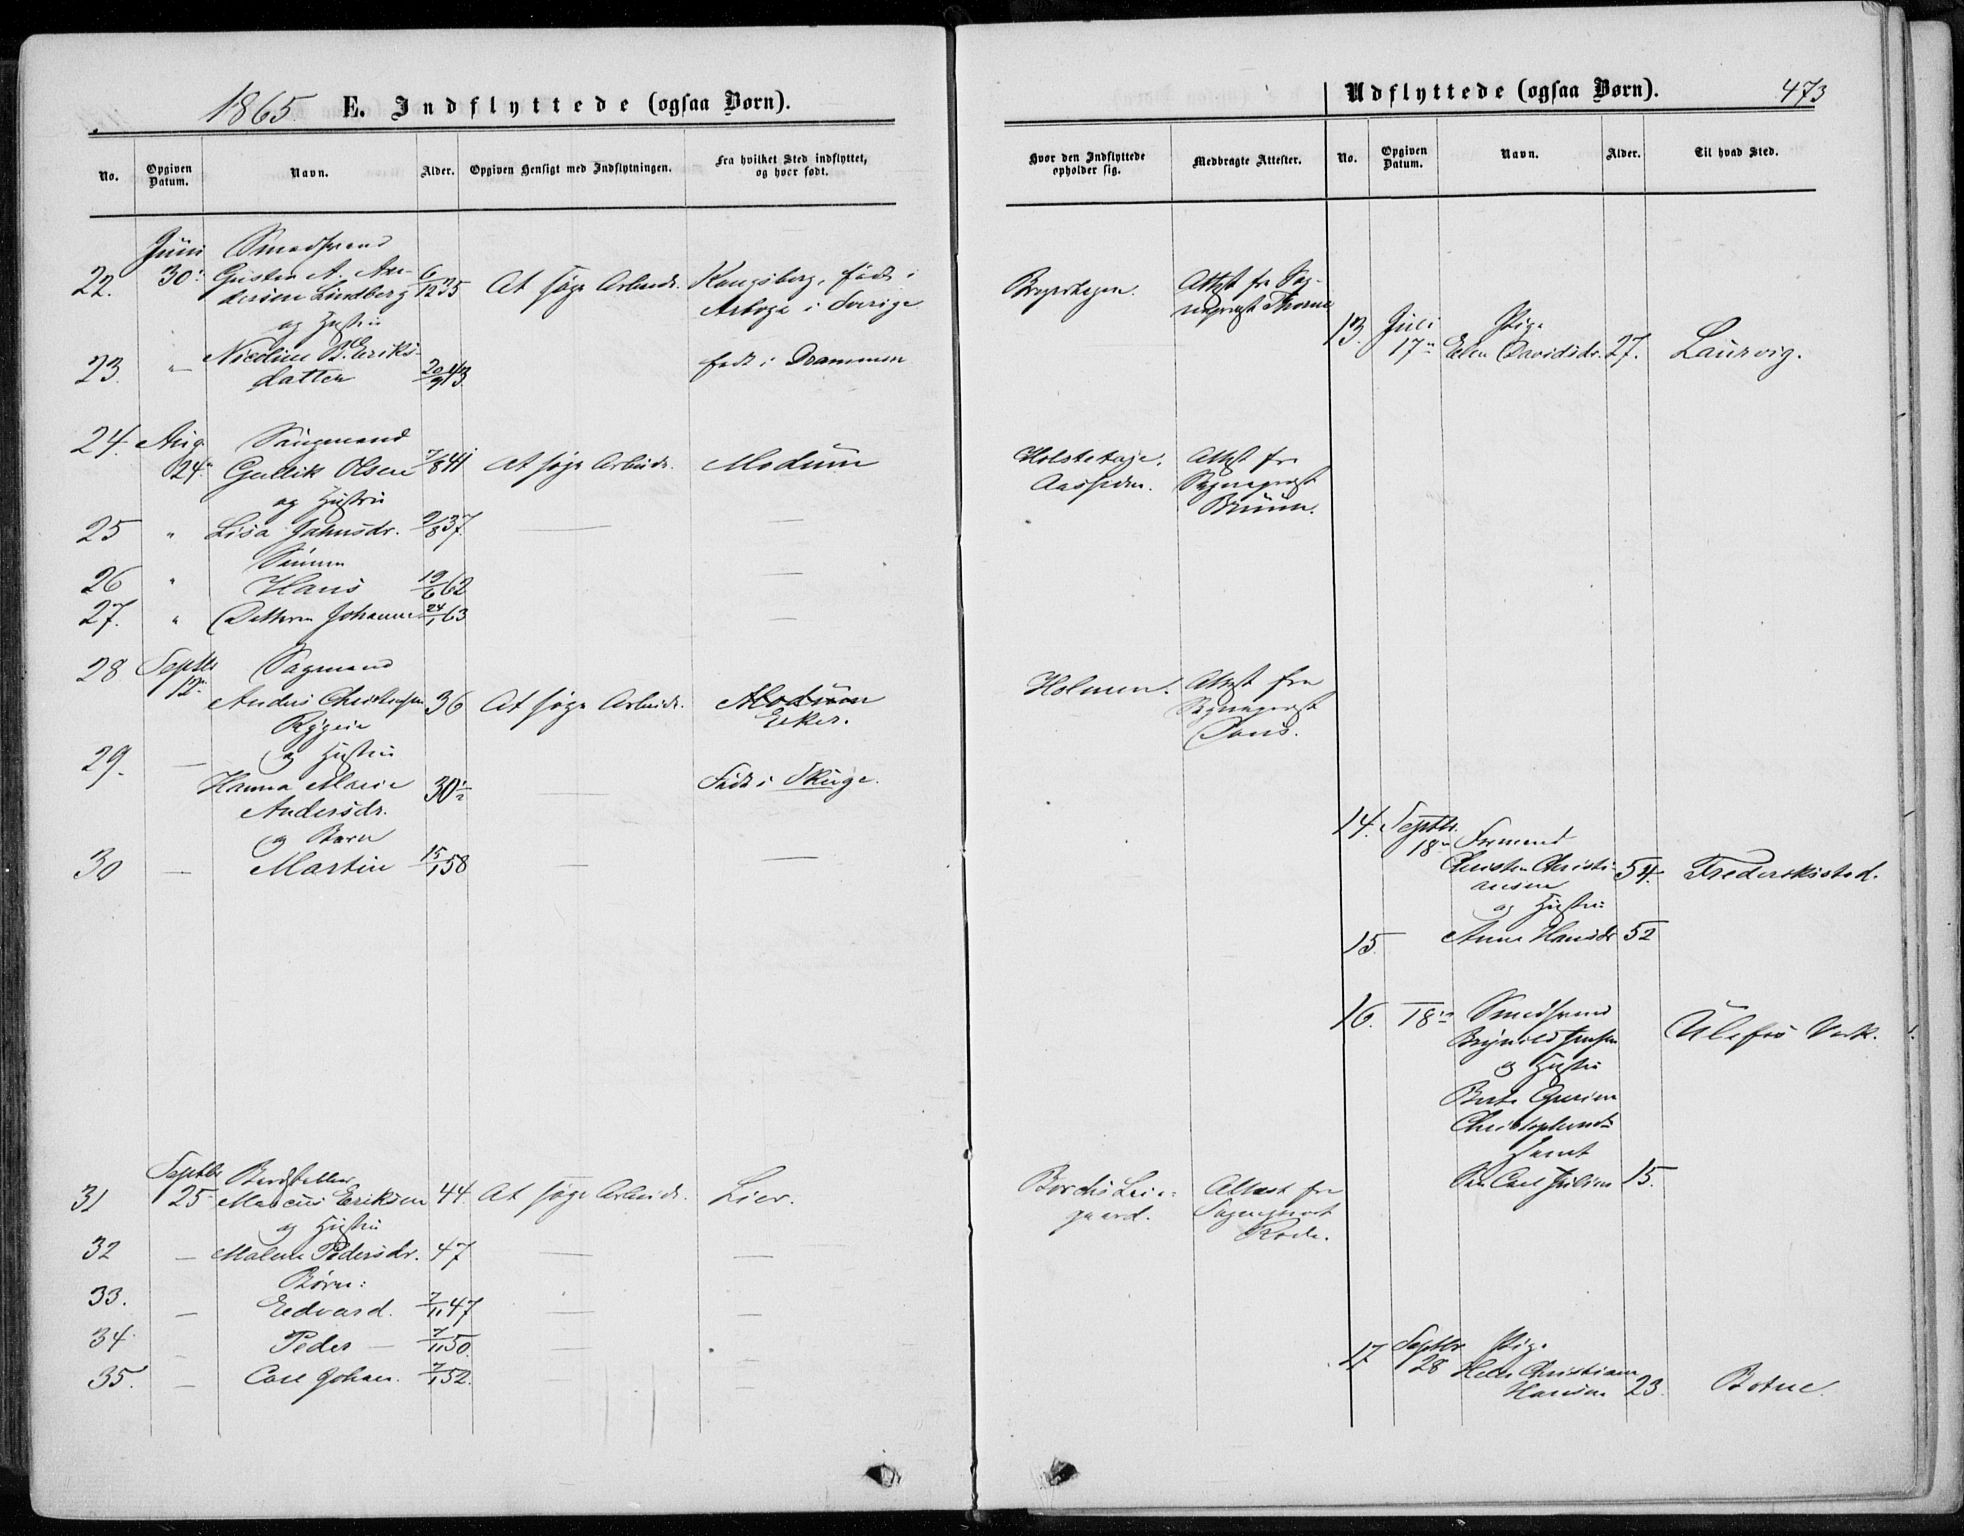 1865 E. Indflyttede (ogsaa Børn).
No. Opgiven Datum. Navn. Alder. Opgiven Hensigt med Indflytningen. Fra hvilket Sted indflyttet, og hvor født.
Juni Smedsvend
22. 30. Gusten A. An- 6/12 35 At søge Arbeide. Kongsberg, født i
dersen Lindberg Arboga i Sverige
og Hustru
23. " Nicoline Eriks- født i Drammen
datter 20/9 43
24. Aug. Saugmand
24. Gullik Olsen 7/8 41 At søge Arbeide. Modum
og Hustru
25 " Lisa Johnsdr. 2/8 37. — —
26 " Hans 19/6 62 —
27. " Johanne 24/1 63 —
28 Septbr Sagmand
12. Anders Christensen 36 At søge Arbeide. Modum
Eeker.
29. — og Hustru
Hanna Marie 30 1/2 — Født i Skuge.
Andersdr.
og Barn
30 — Martin 15/1 58 — —
Septbr
31 25 Marcus Eriksen 44. At søge Arbeide. Lier.
og Hustru
32 — Malene Pedersdr. 47 — —
Børn:
33. — Eedvard. 7/11 47 — —
34 — Peder — 7/11 50. — —
35. — Carl Johan. 7/1 52. — —
Udflyttede (ogsaa Børn). 473
Hvor den Indflyttede opholder sig. Medbragte Attester. No. Opgiven Datum. Navn. Alder. Til hvad Sted.
Attest fra Sog-
nepræst Thorne
13. Juli Pige
17 Elen Davidsdr. 27. Laurvig.
Attest fra
Aassiden. Sognepræst
Holmen. Attest fra
Sognepræst
14. Septbr.
18 Formand
Christen Christi- 54. Frederiksstad.
ansen
og Hustru
15. Anne Hansdr 52
16. 18 Smedsvend
Brynild Jensen Ulefos Værk.
og Hustru
Samt
Søn Carl Julius 15.
Borchs Lei- Attest fra
gaard. Sognepræst
Rode.
17 Septbr Pige
28 Christiane
Hansen 23. Botne.